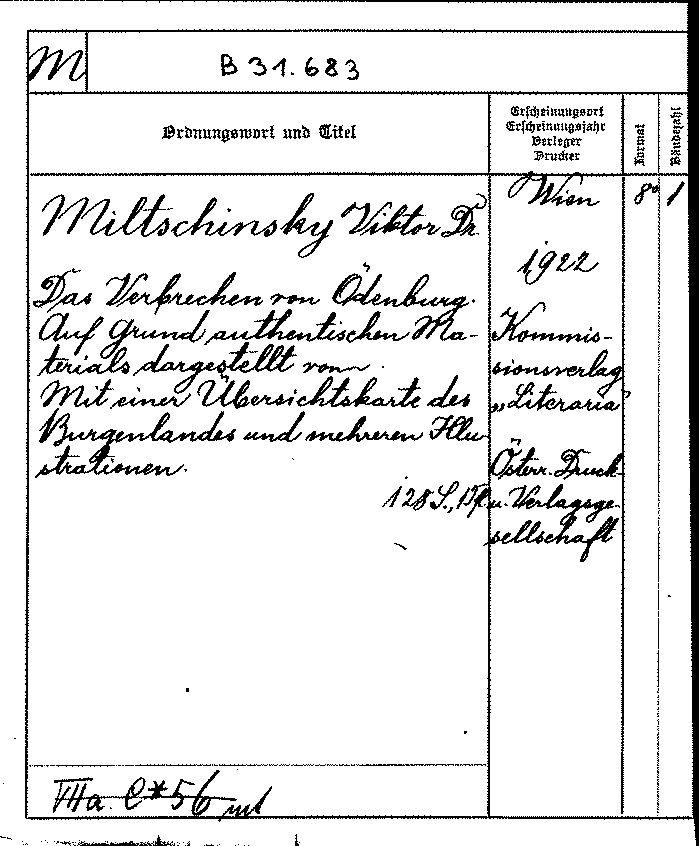 M
B 31.683
Ordnungswort und Titel
Erscheinungsort
Erscheinungsjahr
Verleger
Drucker
Format
Bändezahl
Miltschinsky Viktor Dr.
Wien
8°
1
1922
Das Verbrechen von Ödenburg.
Auf Grund authentischen Ma-
terials dargestellt von
Mit einer Übersichtskarte des
Burgenlandes und mehreren Illu-
strationen.
128 S.,
Kommis-
sionsverlag
„Literaria"
Österr. Druck-
u. Verlagsge-
sellschaft
VIIa. C*56